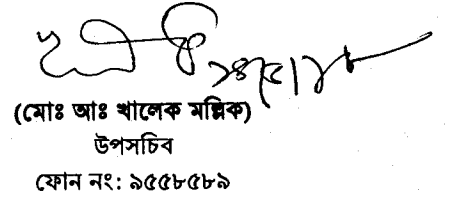 (মোঃ আঃ খালেক মল্লিক)
উপসচিব
ফোন নং: ৯৫৫৮৫৮৯